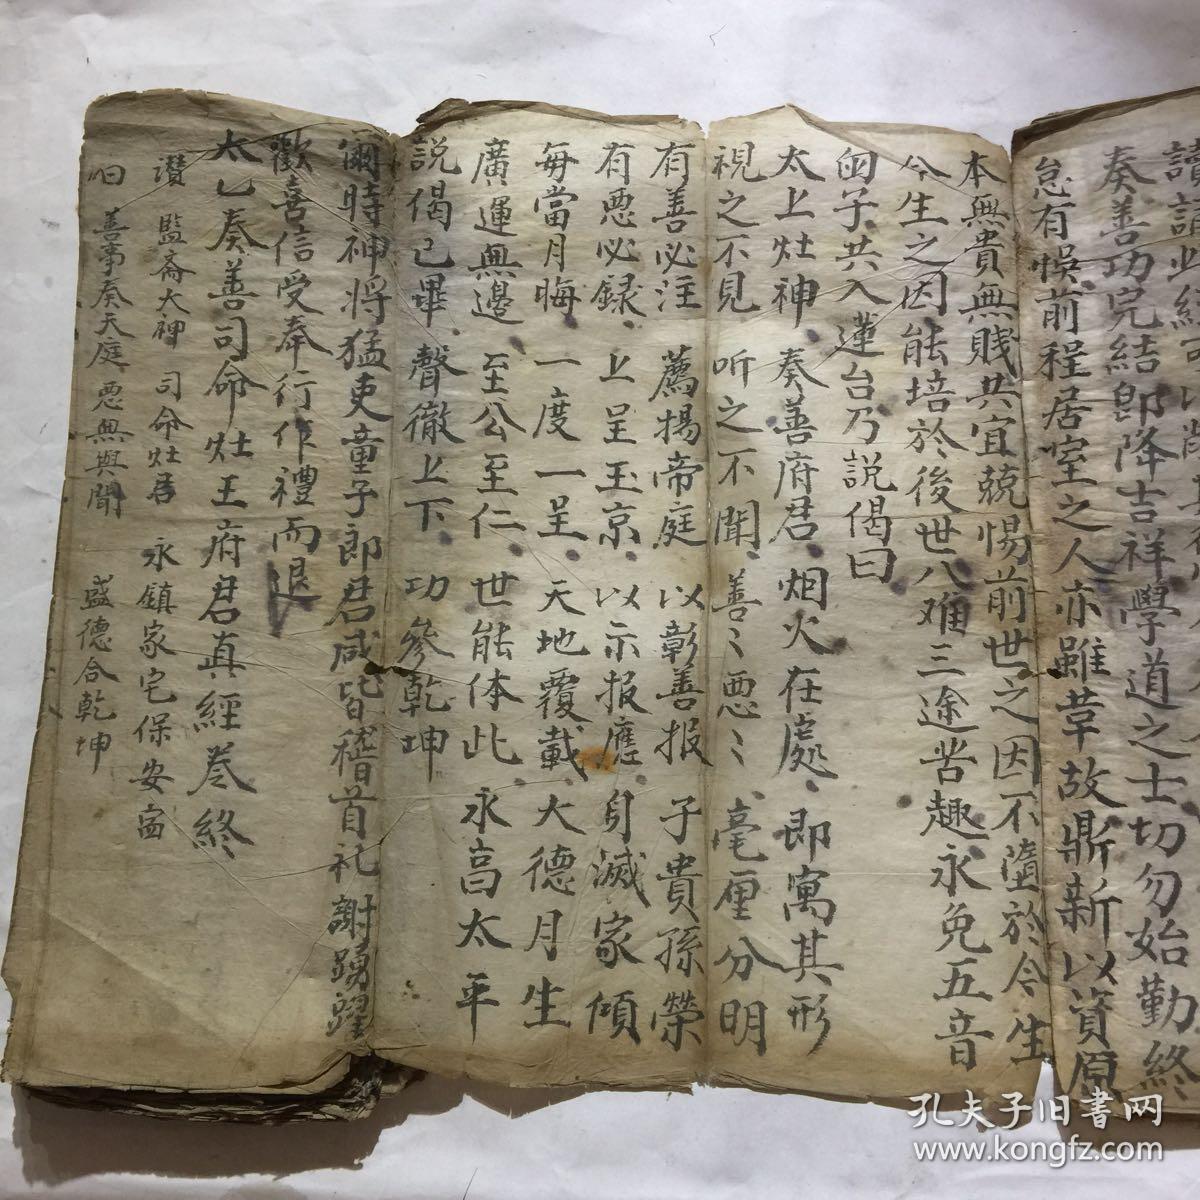 讀誦此經可以
奏善功完結即降吉祥學道之士切勿始勤終
怠有悞前程居室之人亦雖革故鼎新以資原
本無貴無賤共宜兢惕前世之因不墮於今生
今生之因能培於後世八难三途苦趣永免五音
男子共入蓮台乃説偈曰
太上灶神 奏善府君 烟火在處 即寓其形
視之不見 听之不聞 善〻悪〻 毫厘分明
有善必注 薦揚帝庭 以彰善报 子貴孫榮
有悪必録 上呈玉京 以示报應 身滅家傾
每當月晦 一度一呈 天地覆載 大德月生
廣運無邊 至公至仁 世能体此 永昌太平
説偈已畢 聲徹上下 功參乾坤
爾時神将猛吏童子郎君咸皆稽首礼謝踴躍
歡喜信受奉行作禮而退
太乙奏善司命灶王府君真經卷終
讃 監齋大神 司命灶君 永鎮家宅保安寍
善事奏天庭 悪無與聞 盛德合乾坤
孔夫子旧书网
www.kongfz.com